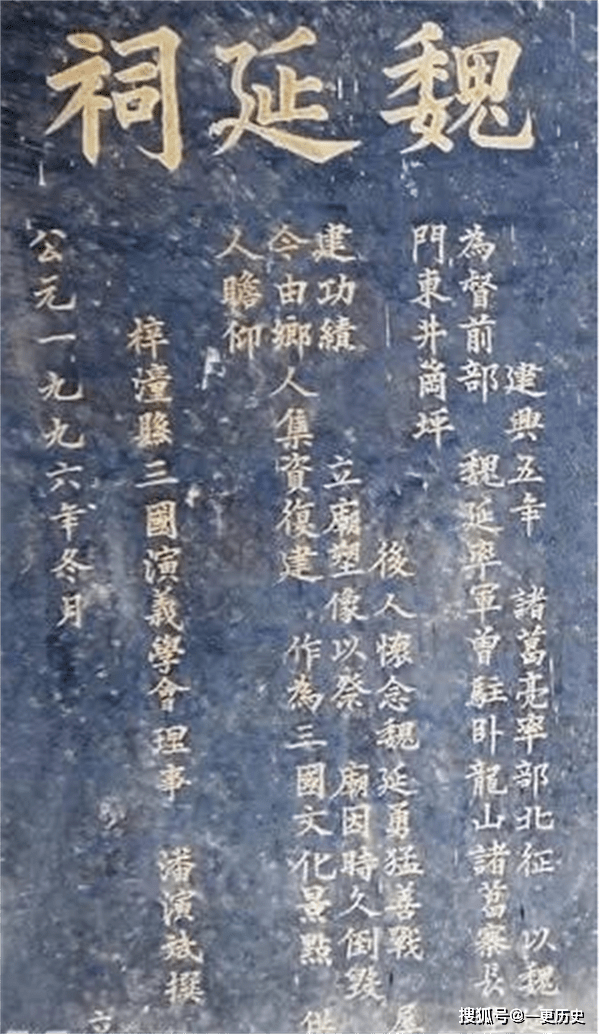 魏延祠
建興五年 諸葛亮率部北征 以魏
為督前部 魏延率軍曾駐卧龍山諸葛寨長
門東井箇坪
後人懷念魏延勇猛善戰
建功績 立廟塑像以祭 廟因時久倒毀
今由鄉人集資復建 作為三國文化景點 供
人瞻仰
梓潼縣三國演義學會理事 潘演斌撰
公元一九九六年冬月
搜狐号@一更历史